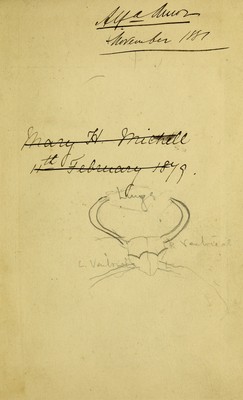 November 1881
Mary H. Michell
11th February 1879.
Lungs
R Ventricle
L. Ventricle